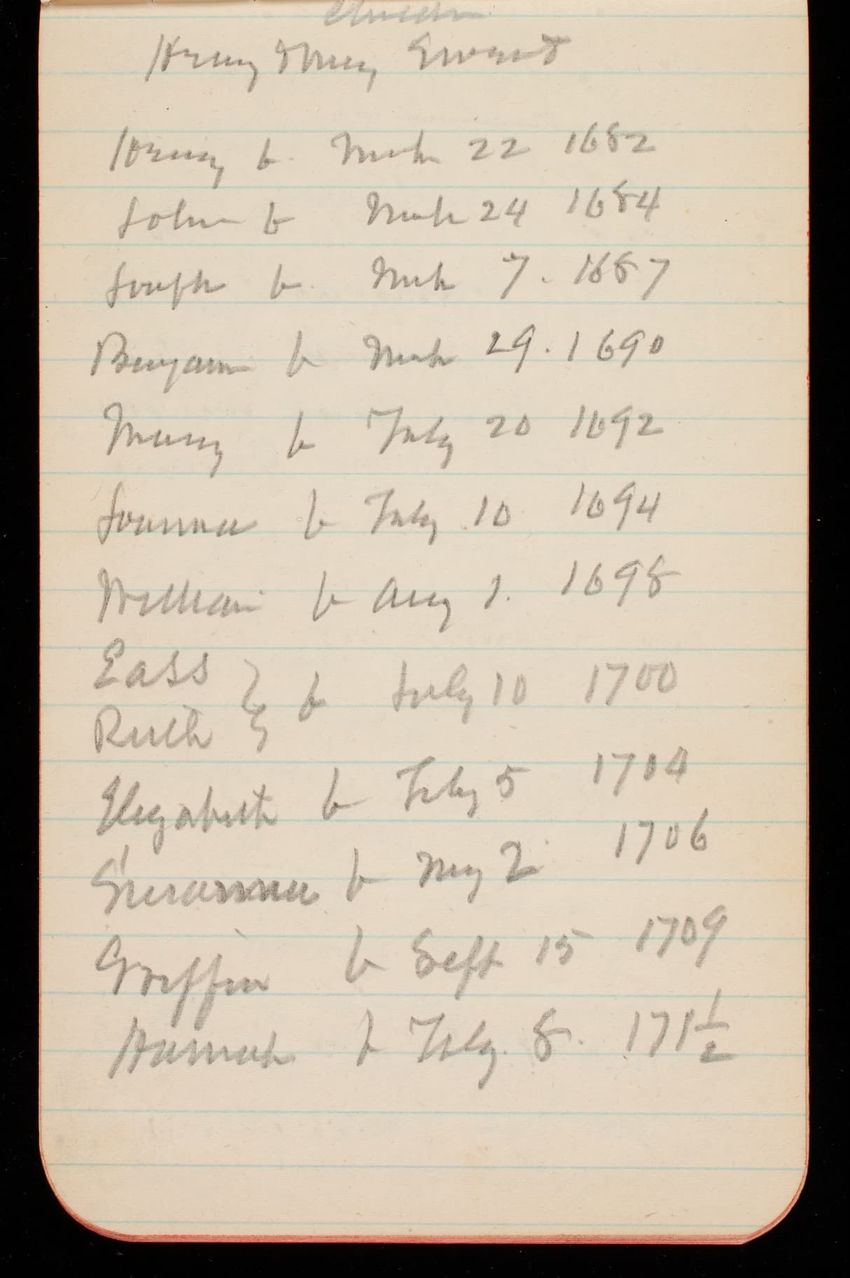 Children
Henry Mary Sweet
Henry b. Mch 22 1682
John b Mch 24 1684
Joseph b. Mch 7. 1687
Benjamin b Mch 29. 1690
Mary b Feby 20 1692
Joanna b Feby 10 1694
William b Aug 1. 1698
b July 10 1700
Ruth
Elizabeth b Feby 5 1704
Susanna b May 2 1706
Griffin b Sept 15 1709
Hannah b Feby. 8. 171 1/2